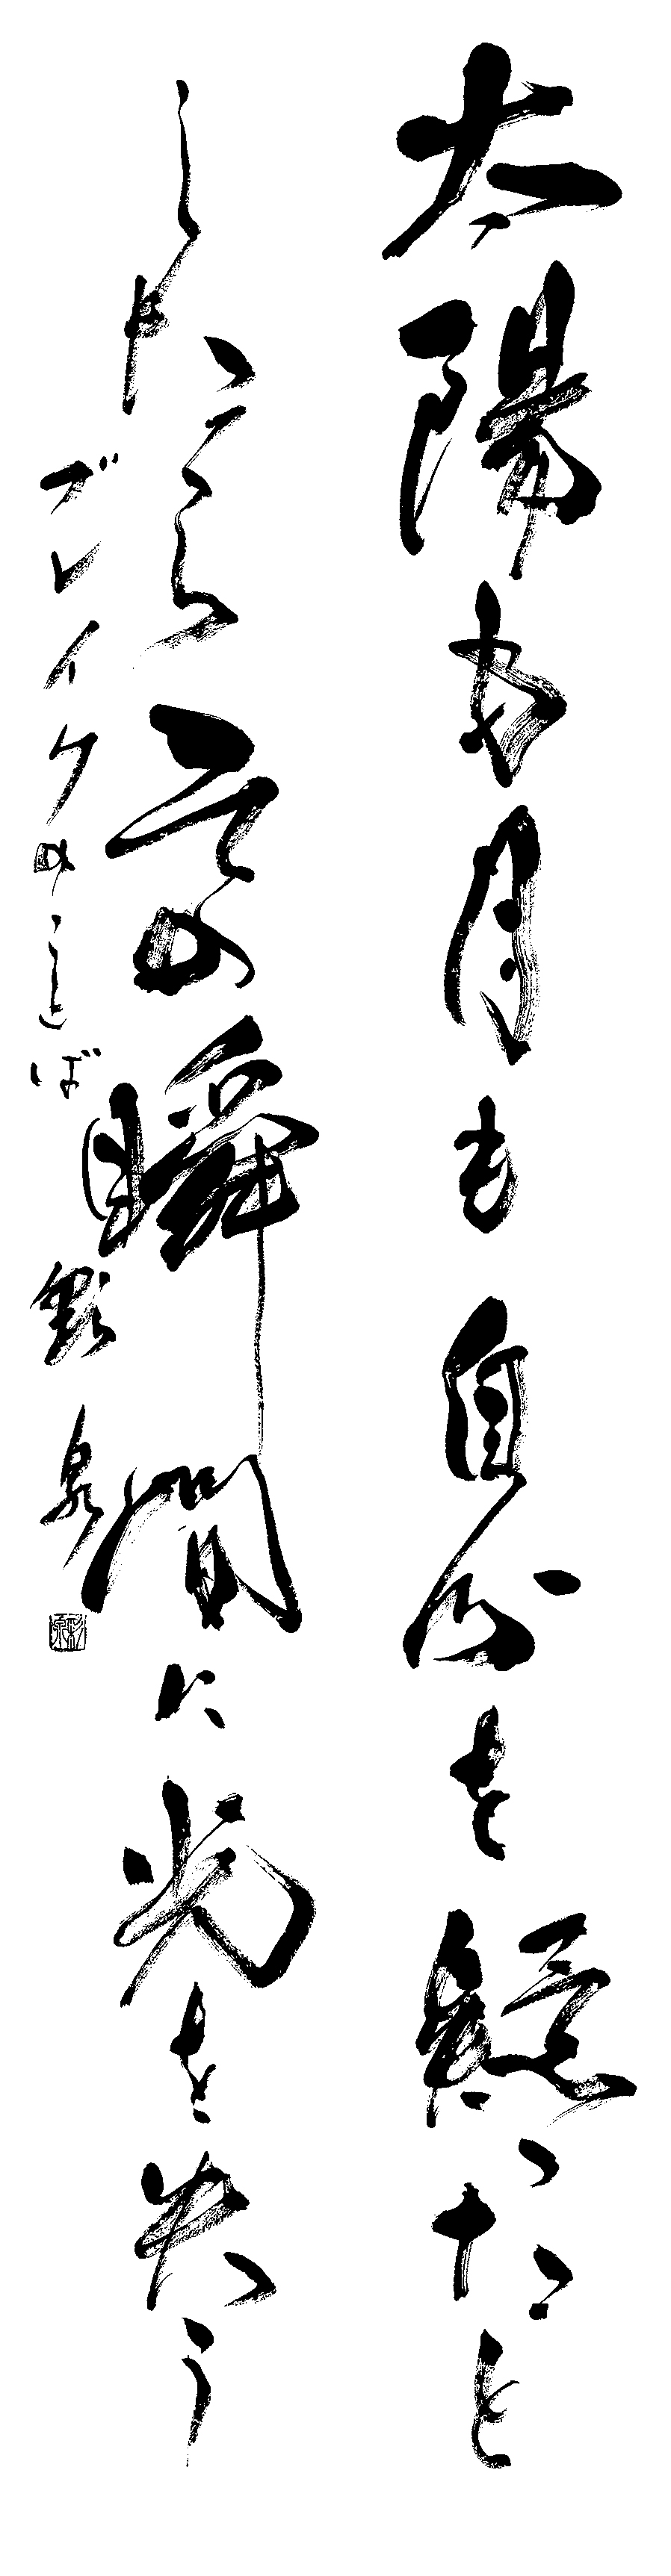 太陽も月も自分を疑ったと
したらその瞬間に光を失う
ブレイクのことば
彩泉